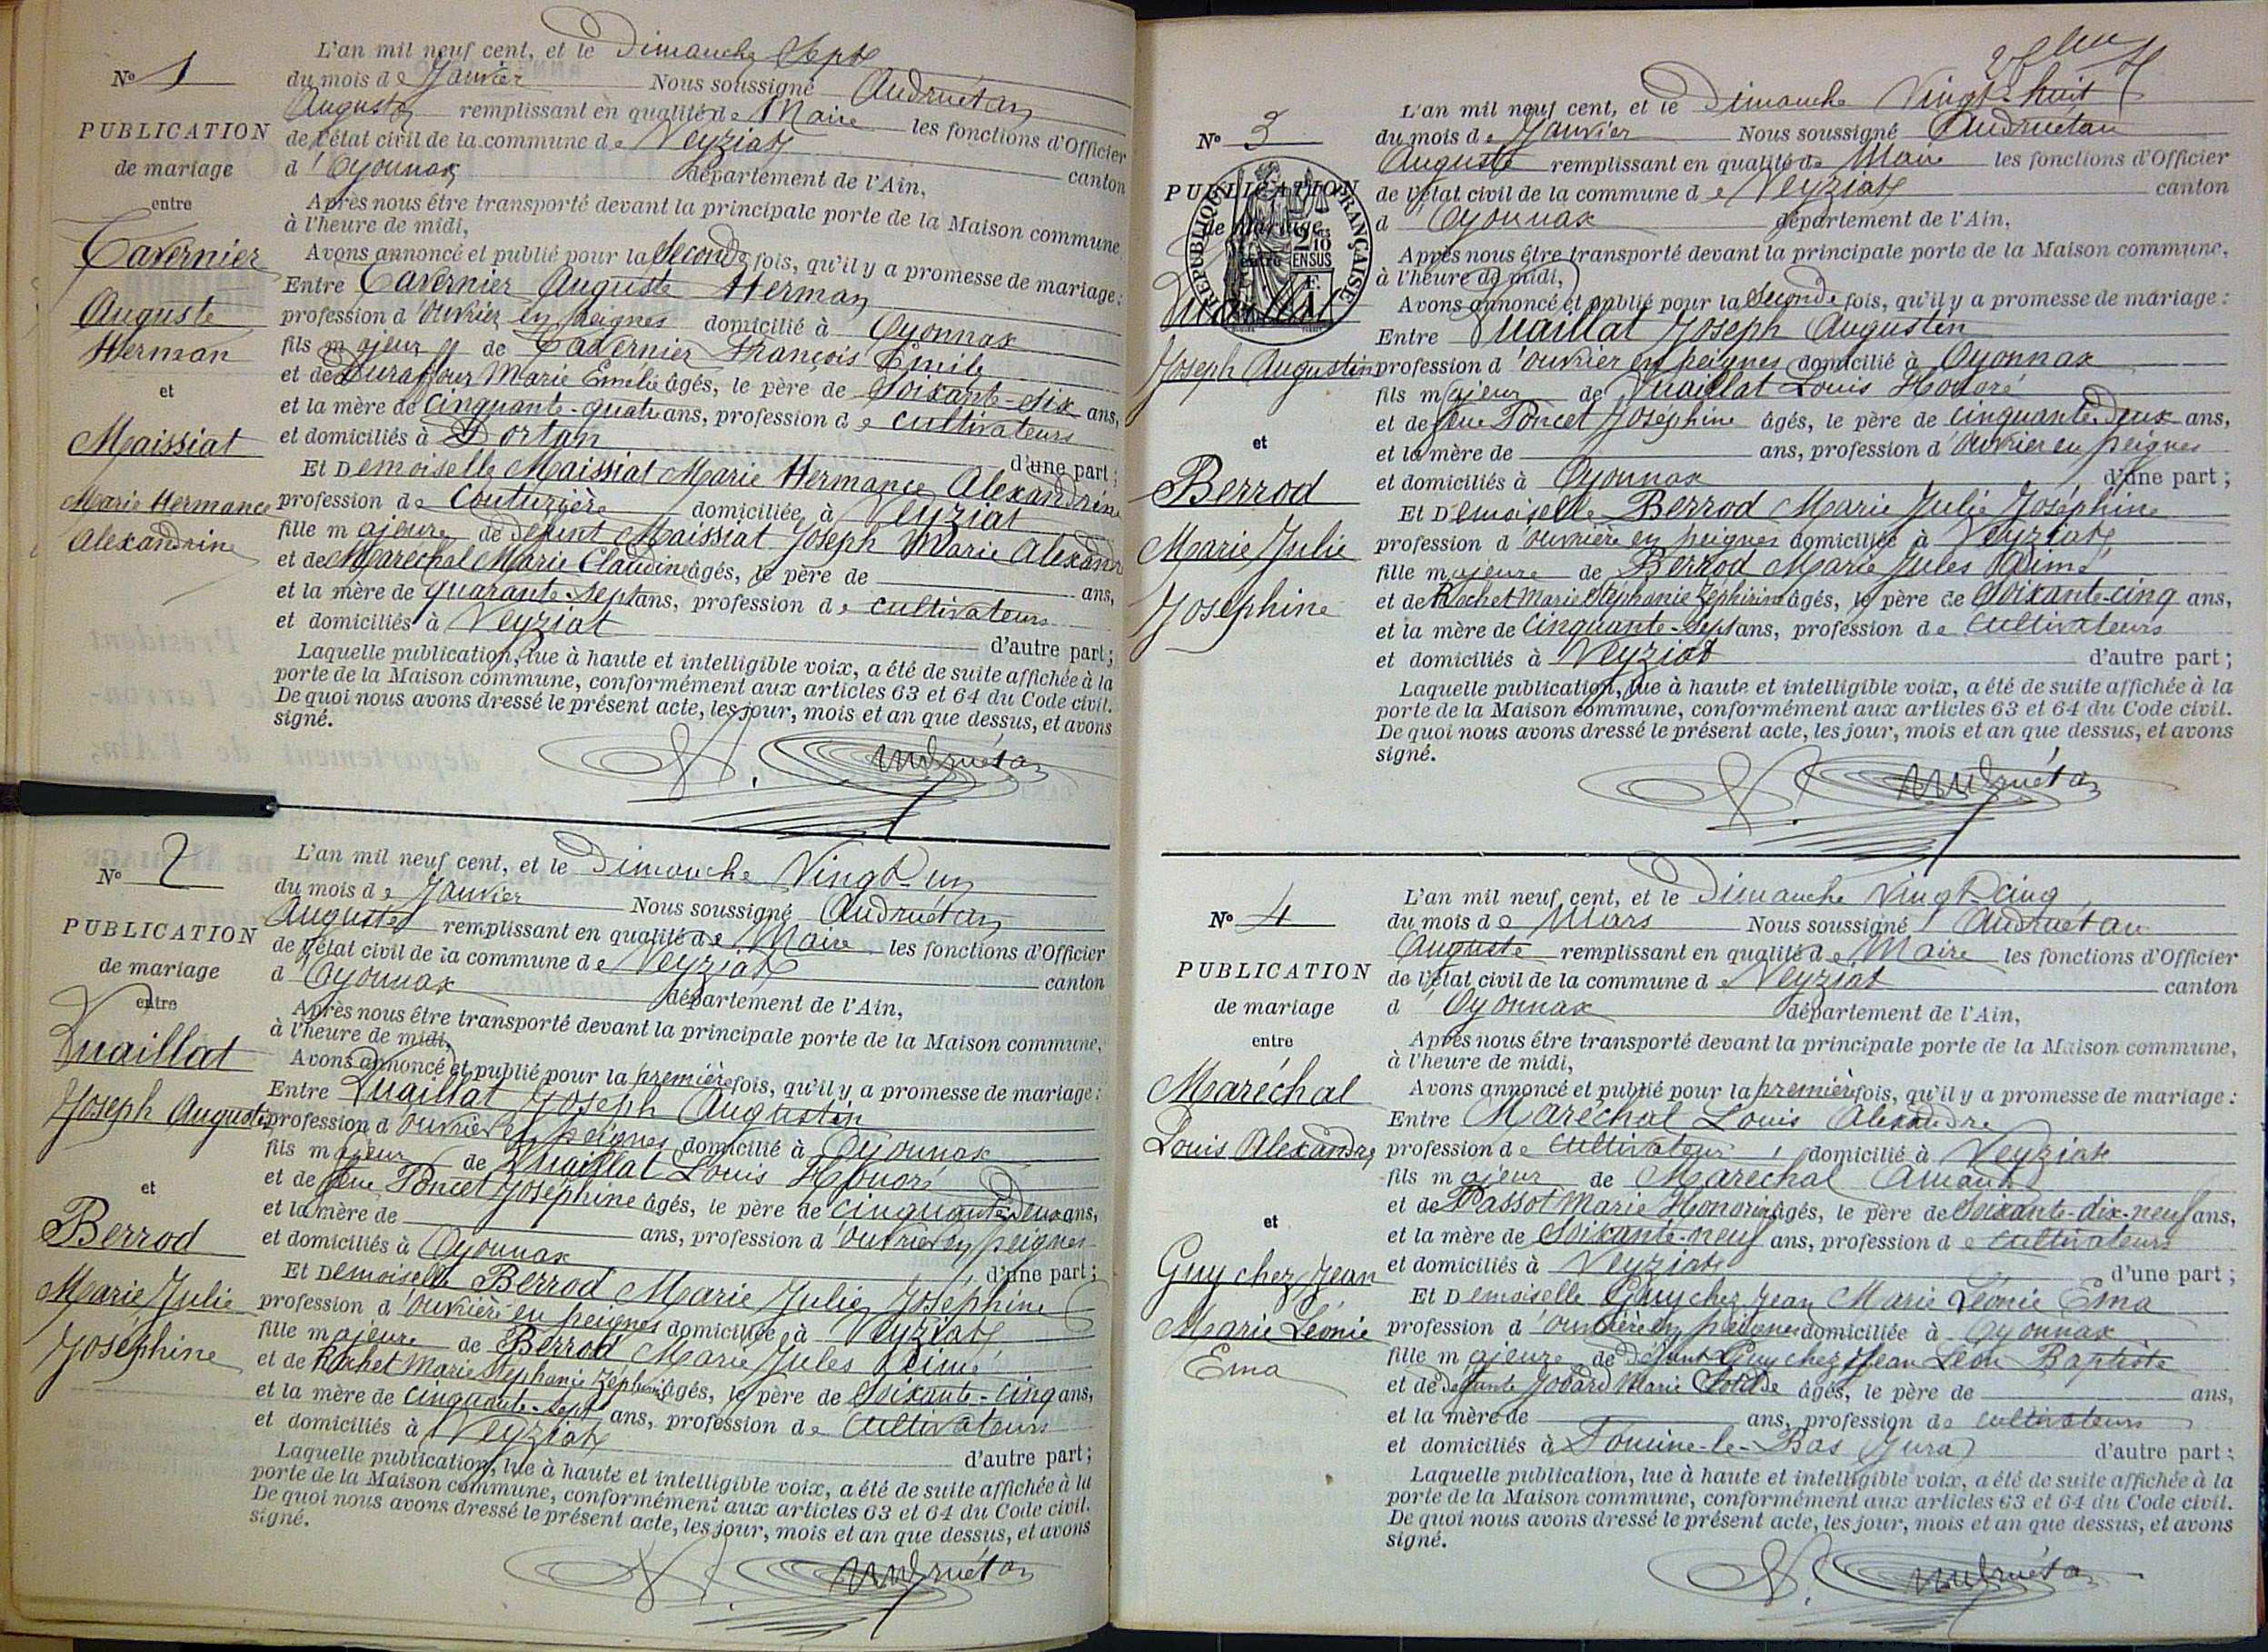 L'an mil neuf cent, et le Dimanche Sept
No 1
du mois de Janvier Nous soussigné Andruétan
Auguste remplissant en qualité de Maire les fonctions d'Officier
PUBLICATION
de l'état civil de la commune de Veyziat
de mariage
d'Oyonnax département de l'Ain, canton
entre
Après nous être transporté devant la principale porte de la Maison commune
à l'heure de midi,
Tavernier
Avons annoncé et publié pour la seconde fois, qu'il y a promesse de mariage:
Entre Tavernier Auguste Herman
Auguste
profession d'ouvrier en peignes domicilié à Oyonnax
Herman
fils majeur de Tavernier François Emile
et
et de Duraffour Marie Emélie âgés, le père de Soixante-six ans,
et la mère de Cinquante-quatre ans, profession de cultivateurs
Maissiat
et domiciliés à Dortan d'une part;
Et Demoiselle Maissiat Marie Hermance Alexandrine
Marie Hermance
profession de Couturière domiciliée à Veyziat
Alexandrine
fille majeure de défunt Maissiat Joseph Marie Alexandre
et de Maréchal Marie Claudine âgés, le père de ans,
et la mère de quarante-sept ans, profession de cultivateurs
et domiciliés à Veyziat d'autre part;
Laquelle publication, lue à haute et intelligible voix, a été de suite affichée à la
porte de la Maison commune, conformément aux articles 63 et 64 du Code civil.
De quoi nous avons dressé le présent acte, les jour, mois et an que dessus, et avons
signé.
Andruétan
L'an mil neuf cent, et le Dimanche Vingt-un
No 2
du mois de Janvier Nous soussigné Andruétan
Auguste remplissant en qualité de Maire les fonctions d'Officier
PUBLICATION
de l'état civil de la commune de Veyziat
de mariage
d'Oyonnax département de l'Ain, canton
entre
Après nous être transporté devant la principale porte de la Maison commune,
à l'heure de midi,
Vuaillat
Avons annoncé et publié pour la première fois, qu'il y a promesse de mariage:
Entre Vuaillat Joseph Augustin
Joseph Augustin
profession d'ouvrier en peignes domicilié à Oyonnax
fils majeur de Vuaillat Louis Honoré
et de feue Poncet Joséphine âgés, le père de cinquante-deux ans,
et
et la mère de ans, profession d'ouvrier en peignes
Berrod
et domiciliés à Oyonnax d'une part;
Et Demoiselle Berrod Marie Julie Joséphine
Marie Julie
profession d'ouvrière en peignes domiciliée à Veyziat
Joséphine
fille majeure de Berrod Marie Jules Aimé
et de Rochet Marie Stéphanie Zéphirine âgés, le père de Soixante-cinq ans,
et la mère de cinquante-sept ans, profession de cultivateurs
et domiciliés à Veyziat d'autre part;
Laquelle publication, lue à haute et intelligible voix, a été de suite affichée à la
porte de la Maison commune, conformément aux articles 63 et 64 du Code civil.
De quoi nous avons dressé le présent acte, les jour, mois et an que dessus, et avons
signé.
Andruétan
L'an mil neuf cent, et le Dimanche Vingt-huit
No 3
du mois de Janvier Nous soussigné Andruétan
Auguste remplissant en qualité de Maire les fonctions d'Officier
PUBLICATION
de l'état civil de la commune de Veyziat canton
de mariage
d'Oyonnax département de l'Ain,
entre
RÉPUBLIQUE FRANÇAISE
2/10 EN SUS
Après nous être transporté devant la principale porte de la Maison commune,
à l'heure de midi,
Vuaillat
Avons annoncé et publié pour la seconde fois, qu'il y a promesse de mariage:
Entre Vuaillat Joseph Augustin
Joseph Augustin
profession d'ouvrier en peignes domicilié à Oyonnax
fils majeur de Vuaillat Louis Honoré
et de feue Poncet Joséphine âgés, le père de cinquante-deux ans,
et
et la mère de ans, profession d'ouvrier en peignes
Berrod
et domiciliés à Oyonnax d'une part;
Et Demoiselle Berrod Marie Julie Joséphine
Marie Julie
profession d'ouvrière en peignes domiciliée à Veyziat
fille majeure de Berrod Marie Jules Aimé
Joséphine
et de Rochet Marie Stéphanie Zéphirine âgés, le père de Soixante-cinq ans,
et la mère de cinquante-sept ans, profession de cultivateurs
et domiciliés à Veyziat d'autre part;
Laquelle publication, lue à haute et intelligible voix, a été de suite affichée à la
porte de la Maison commune, conformément aux articles 63 et 64 du Code civil.
De quoi nous avons dressé le présent acte, les jour, mois et an que dessus, et avons
signé.
Andruétan
L'an mil neuf cent, et le Dimanche Vingt-cinq
No 4
du mois de Mars Nous soussigné Andruétan
Auguste remplissant en qualité de Maire les fonctions d'Officier
PUBLICATION
de l'état civil de la commune de Veyziat canton
de mariage
d'Oyonnax département de l'Ain,
entre
Après nous être transporté devant la principale porte de la Maison commune,
à l'heure de midi,
Maréchal
Avons annoncé et publié pour la première fois, qu'il y a promesse de mariage:
Entre Maréchal Louis Alexandre
Louis Alexandre
profession de cultivateur domicilié à Veyziat
fils majeur de Maréchal Amand
et de Passot Marie Honorine âgés, le père de soixante-dix-neuf ans,
et
et la mère de soixante-neuf ans, profession de cultivateurs
Guy chez Jean
et domiciliés à Veyziat d'une part;
Et Demoiselle Guy chez Jean Marie Léonie Ema
Marie Léonie
profession d'ouvrière en peignes domiciliée à Oyonnax
Ema
fille majeure de défunt Guy chez Jean Léon Baptiste
et de défunte Jobard Marie Clotilde âgés, le père de ans,
et la mère de ans, profession de cultivateurs
et domiciliés à (Jura) d'autre part;
Laquelle publication, lue à haute et intelligible voix, a été de suite affichée à la
porte de la Maison commune, conformément aux articles 63 et 64 du Code civil.
De quoi nous avons dressé le présent acte, les jour, mois et an que dessus, et avons
signé.
Andruétan